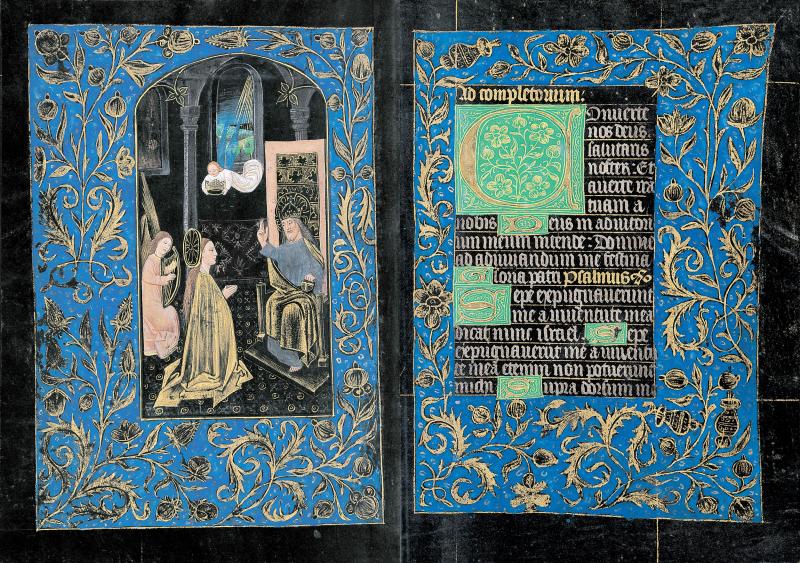 Ad completorium:
Conuerte
nos deus.
salutaris
noster: Et
auerte irā
tuam a
nobis Deus in adiutori
um meum intende: Domine
ad adiuuandum me festina
Gloria patri Psalmus
Sepe expugnauerunt
me a iuuentute mea
dicat nunc israel. Sepe
expugnauerūt me a iuuentu
te mea etenim non potuerunt
michi Supra dorsum m